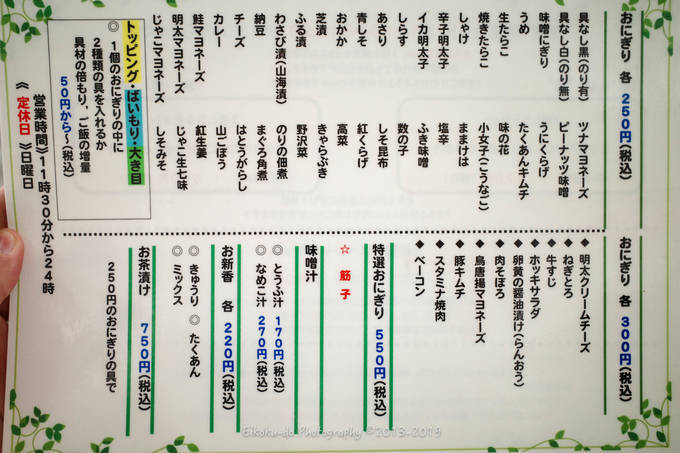 おにぎり 各 250円(税込)
具なし黒(のり有)
具なし白(のり無)
味噌にぎり
うめ
生たらこ
焼きたらこ
しゃけ
辛子明太子
イカ明太子
しらす
あさり
青しそ
おかか
芝漬
ふる漬
わさび漬(山海漬)
納豆
チーズ
カレー
鮭マヨネーズ
明太マヨネーズ
じゃこマヨネーズ
ツナマヨネーズ
ピーナッツ味噌
うにくらげ
たくあんキムチ
味の花
小女子(こうなご)
ままけは
塩辛
ふき味噌
数の子
しそ昆布
紅くらげ
高菜
きゃらぶき
野沢菜
のりの佃煮
まぐろ角煮
はとうがらし
山ごぼう
紅生姜
じゃこ生七味
しそみそ
トッピング・ばいもり・大き目
◎ 1個のおにぎりの中に
2種類の具を入れるか
具材の倍もり、ご飯の増量
50円から~(税込)
営業時間》11時30分から24時
《定休日》日曜日
おにぎり 各 300円(税込)
◆ 明太クリームチーズ
◆ ねぎとろ
◆ 牛すじ
◆ ホッキサラダ
◆ 卵黄の醤油漬け(らんおう)
◆ 肉そぼろ
◆ 鳥唐揚マヨネーズ
◆ 豚キムチ
◆ スタミナ焼肉
◆ ベーコン
特選おにぎり 550円(税込)
☆ 筋子
味噌汁
◎ とうふ汁 170円(税込)
◎ なめこ汁 270円(税込)
お新香 各 220円(税込)
◎ きゅうり ◎ たくあん
◎ ミックス
お茶漬け 750円(税込)
250円のおにぎりの具で
Eikoku-do Photography ©2013-2019